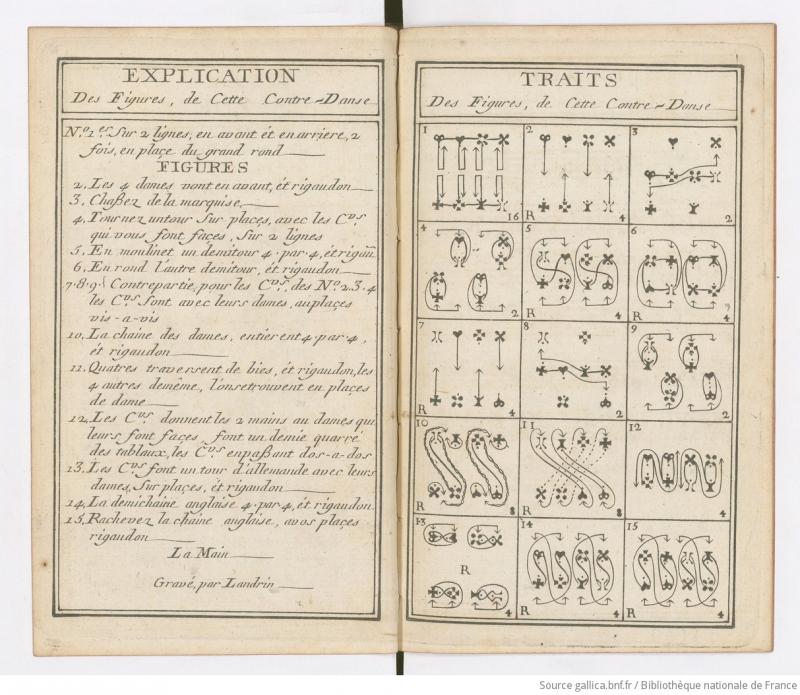 EXPLICATION
Des Figures, de Cette Contre-Danse
N.º 1.er Sur 2 lignes, en avant ét en arriere, 2
fois, en plaçe du grand rond
FIGURES
2. Les 4 dames vont en avant, ét rigaudon
3. Chaßez de la marquise
4. Tournez un tour sur plaçes, avec les C.vs
qui vous font façes, Sur 2 lignes
5. En moulinet un demitour 4 par 4, ét rigau.
6. En rond l'autre demitour, ét rigaudon
7. 8. 9. Contrepartie, pour les C.vs, des N.os 2. 3. 4
les C.vs Sont avec leurs dames, au plaçes
vis-a-vis
10. La chaine des dames, entierent 4 par 4,
ét rigaudon
11. Quatres traversent de bies, ét rigaudon, les
4 autres demême, l'on se trouvent en plaçes
de dame
12. Les C.vs donnent les 2 mains au dames qui
leurs font façes font un demie quarré
des tablaux, les C.vs en paßant dos-a-dos
13. Les C.vs font un tour d'allemande avec leurs
dames, Sur plaçes, ét rigaudon
14. La demi chaine anglaise 4 par 4, ét rigaudon
15. Rachevez la chaine anglaise, avos plaçes
rigaudon
La Main
Gravé, par Landrin
TRAITS
Des Figures, de Cette Contre-Danse
1 2 3
16 R 4 2
4 5 6
2 R 4 R 4
7 8 9
R 4 2 2
10 11 12
R 8 R 8 4
13 14 15
R
4 R 4 R 4
Source gallica.bnf.fr / Bibliothèque nationale de France